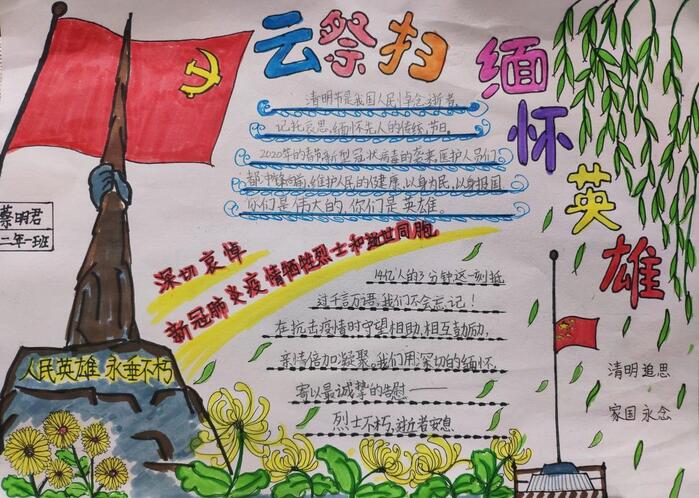 云祭扫
缅怀英雄
清明节是我国人民悼念逝者,
记托哀思,缅怀先人的传统节日。
2020年的春节新型冠状病毒的袭来医护人员们
都冲锋向前,维护人民的健康,以身为民,以身报国
你们是伟大的,你们是英雄。
蔡明君
二年一班
深切哀悼
新冠肺炎疫情牺牲烈士和逝世同胞
14亿人的3分钟这一刻抵
过千言万语,我们不会忘记!
在抗击疫情时守望相助,相互勉励,
亲情倍加凝聚。我们用深切的缅怀,
寄以最诚挚的告慰——
烈士不朽,逝者安息
人民英雄 永垂不朽
清明追思
家国永念